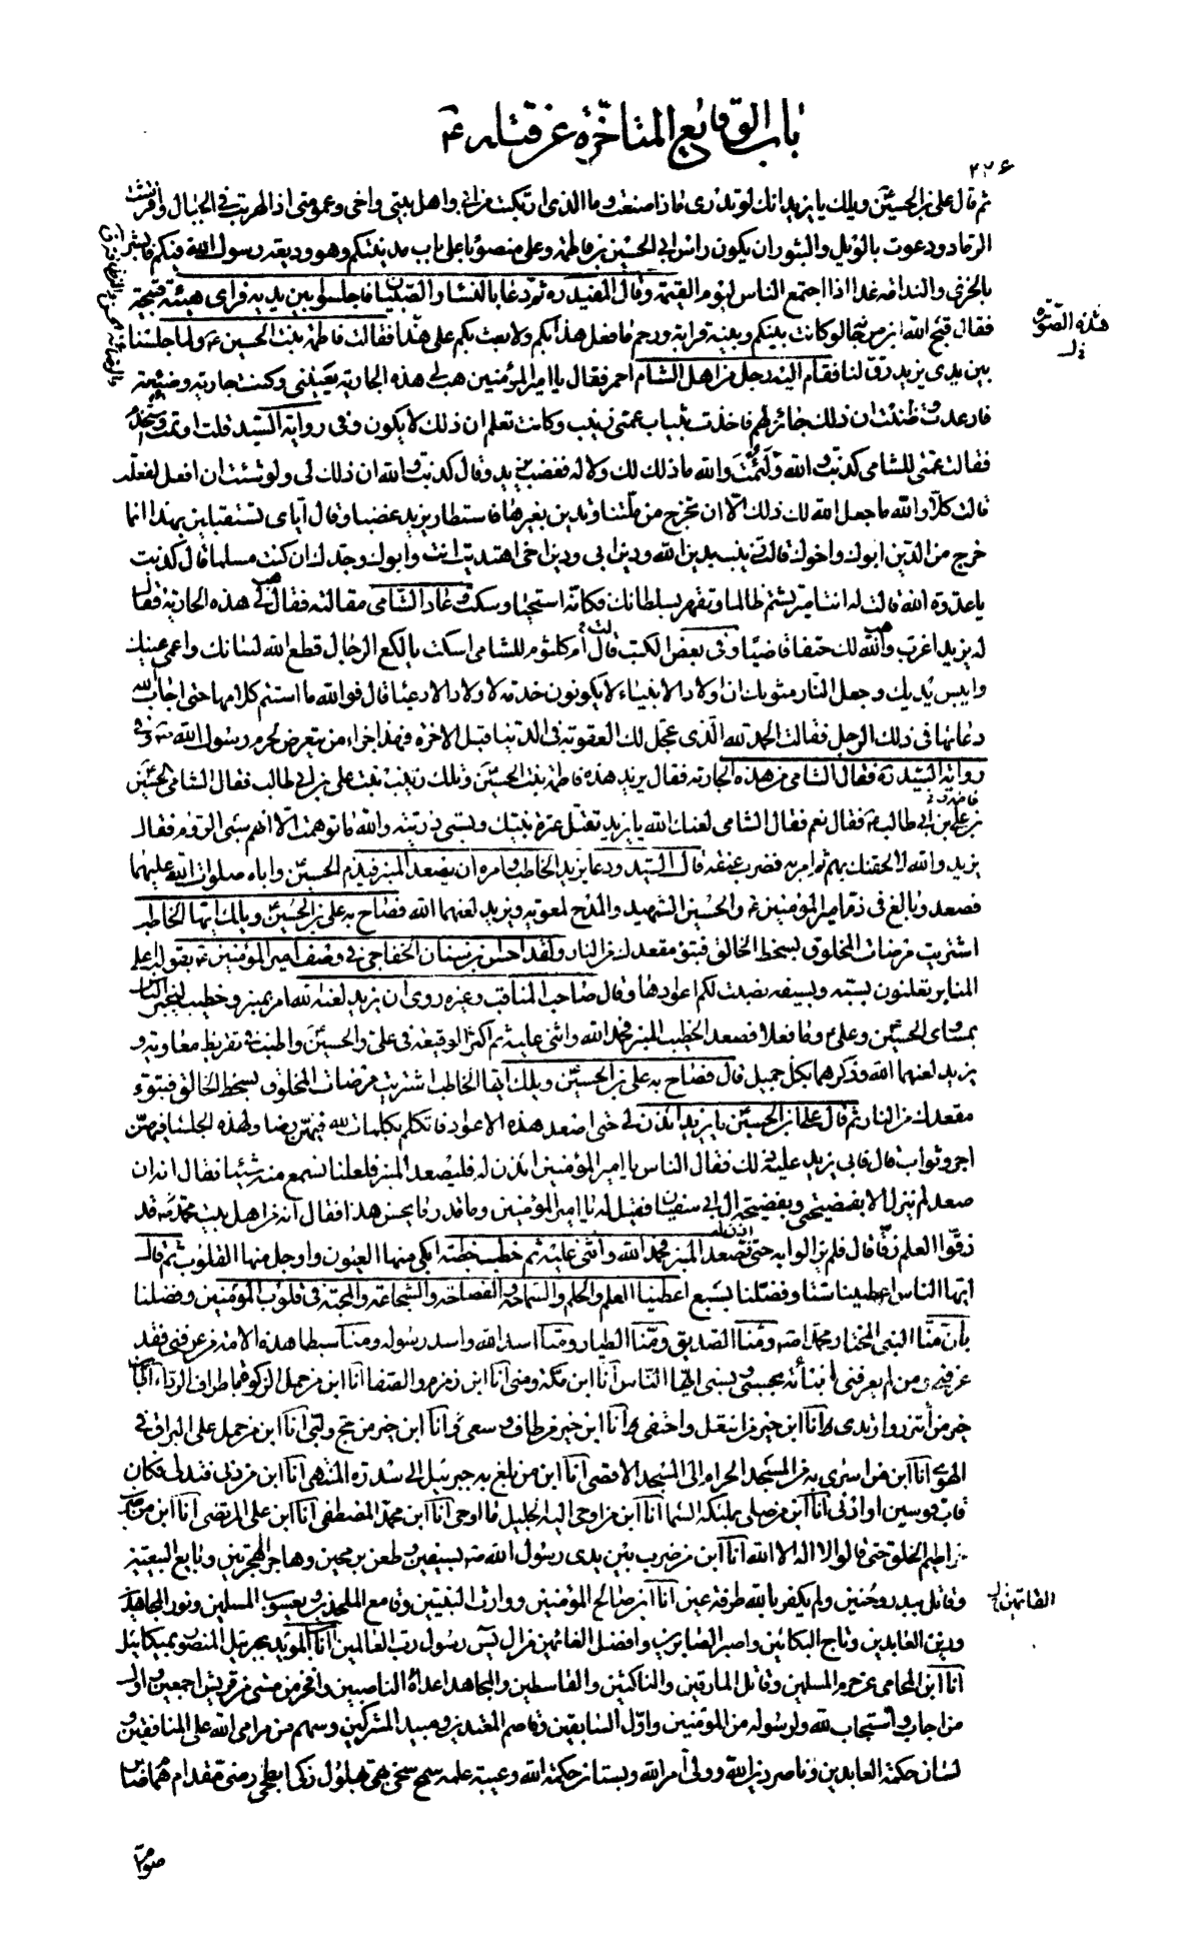 باب الوقايع المتاخّرة عن قتله ع
٢٢٦
ثم قال علي بن الحسين ويلك يا يزيد انك لو تدرى ماذا صنعت وما الذى ارتكبت من ابى واهل بيتى واخى وعمومتى اذا لهربت فى الجبال وافترشت
الرماد ودعوت بالويل والثبور ان يكون راس ابى الحسين بن فاطمة وعلى منصوبا على باب مدينتكم وهو وديعة رسول الله فيكم فابشر
بالخزى والندامة غدا اذا اجتمع الناس ليوم القيمة وقال المفيد ره ثم دعا بالنساء والصبيان فاجلسوا بين يديه فراى هيئة قبيحة
هذه الصورة
فقال قبح الله ابن مرجانة لو كانت بينكم وبينه قرابة ورحم ما فعل هذا بكم ولا بعث بكم على هذا فقالت فاطمة بنت الحسين ع ولما جلسنا
بين يدى يزيد رق لنا فقام اليه رجل من اهل الشام احمر فقال يا امير المؤمنين هب لى هذه الجارية يعيننى وكنت جارية وضيئة
فارعدت وظننت ان ذلك جائز لهم فاخذت بثياب عمتى زينب وكانت تعلم ان ذلك لا يكون وفى رواية السيد قلت اوتمت واستخدم
فقالت عمتى للشامى كذبت والله ولؤمت والله ما ذلك لك ولا له فغضب يزيد وقال كذبت والله ان ذلك لى ولو شئت ان افعل لفعلت
قالت كلا والله ما جعل الله لك ذلك الا ان تخرج من ملتنا وتدين بغيرها فاستطار يزيد غضبا وقال اياى تستقبلين بهذا انما
خرج من الدين ابوك واخوك قالت زينب بدين الله ودين ابى ودين اخى اهتديت انت وابوك وجدك ان كنت مسلما قال كذبت
يا عدوة الله قالت له انت امير تشتم ظالما وتقهر بسلطانك فكانه استحيا وسكت وعاد الشامى مقالته فقال هب لى هذه الجارية فقال
له يزيد اغرب وهب الله لك حتفا قاضيا وفى بعض الكتب قالت ام كلثوم للشامى اسكت يا لكع الرجال قطع الله لسانك واعمى عينيك
وايبس يديك وجعل النار مثويك ان اولاد الانبياء لا يكونون خدمة لاولاد الادعياء قال فوالله ما استتم كلامها حتى اجاب الله
دعائها فى ذلك الرجل فقالت الحمد لله الذى عجل لك العقوبة فى الدنيا قبل الاخرة فهذا جزاء من يتعرض لحرم رسول الله ص وفى
رواية السيد ره فقال الشامى من هذه الجارية فقال يزيد هذه فاطمة بنت الحسين وتلك زينب بنت على بن ابى طالب فقال الشامى الحسين
بن فاطمة وعلى بن ابى طالب ع فقال نعم فقال الشامى لعنك الله يا يزيد تقتل عترة نبيك وتسبى ذريته والله ما توهمت الا انهم سبى الروم فقال
يزيد والله لالحقنك بهم ثم امر به فضرب عنقه قال السيد ودعا يزيد الخاطب وامره ان يصعد المنبر فيذم الحسين واباه صلوات الله عليهما
فصعد وبالغ فى ذم امير المؤمنين ع والحسين الشهيد والمدح لمعوية ويزيد لعنهما الله فصاح به على بن الحسين ويلك ايها الخاطب
اشتريت مرضات المخلوق بسخط الخالق فتبوء مقعدك من النار ولقد احسن ابن سنان الخفاجى فى وصف امير المؤمنين ع بقوله اعلى
المنابر تعلنون بسبه وبسيفه نصبت لكم اعوادها وقال صاحب المناقب وغيره روى ان يزيد لعنه الله امر بمنبر وخطيب ليخبر الناس
بمساوى الحسين وعلى وما فعلا فصعد الخطيب المنبر فحمد الله واثنى عليه ثم اكثر الوقيعة فى على والحسين واطنب فى تقريظ معاوية و
يزيد لعنهما الله فذكرهما بكل جميل قال فصاح به على بن الحسين ويلك ايها الخاطب اشتريت مرضات المخلوق بسخط الخالق فتبوء
مقعدك من النار ثم قال على بن الحسين يا يزيد ائذن لى حتى اصعد هذه الاعواد فاتكلم بكلمات لله فيهن رضا ولهذه الجلساء فيهن
اجر وثواب قال فابى يزيد عليه ذلك فقال الناس يا امير المؤمنين ائذن له فليصعد المنبر فلعلنا نسمع منه شيئا فقال انه ان
صعد لم ينزل الا بفضيحتى وبفضيحة آل ابى سفيان فقيل له يا امير المؤمنين وما قدر ما يحسن هذا فقال انه من اهل بيت قد
زقوا العلم زقا قال فلم يزالوا به حتى اذن له فصعد المنبر فحمد الله واثنى عليه ثم خطب خطبة ابكى منها العيون واوجل منها القلوب ثم قال
ايها الناس اعطينا ستا وفضلنا بسبع اعطينا العلم والحلم والسماحة والفصاحة والشجاعة والمحبة فى قلوب المؤمنين وفضلنا
بان منا النبى المختار محمدا ص ومنا الصديق ومنا الطيار ومنا اسد الله واسد رسوله ومنا سبطا هذه الامة من عرفنى فقد
عرفنى ومن لم يعرفنى انبأته بحسبى ونسبى ايها الناس انا ابن مكة ومنى انا ابن زمزم والصفا انا ابن من حمل الركن باطراف الردا انا ابن
خير من ائتزر وارتدى انا ابن خير من انتعل واحتفى انا ابن خير من طاف وسعى انا ابن خير من حج ولبى انا ابن من حمل على البراق فى
الهواء انا ابن من اسرى به من المسجد الحرام الى المسجد الاقصى انا ابن من بلغ به جبرئيل الى سدرة المنتهى انا ابن من دنى فتدلى فكان
قاب قوسين او ادنى انا ابن من صلى بملئكة السما انا ابن من اوحى اليه الجليل ما اوحى انا ابن محمد المصطفى انا ابن على المرتضى انا ابن من ضرب
خراطيم الخلق حتى قالوا لا اله الا الله انا ابن من ضرب بين يدى رسول الله ص بسيفين وطعن برمحين وهاجر الهجرتين وبايع البيعتين
وقاتل ببدر وحنين ولم يكفر بالله طرفة عين انا ابن صالح المؤمنين ووارث النبيين وقامع الملحدين ويعسوب المسلمين ونور المجاهدين
القائمين
وزين العابدين وتاج البكائين واصبر الصابرين وافضل القائمين من آل يس رسول رب العالمين انا ابن المؤيد بجبرئيل المنصور بميكائيل
انا ابن المحامى عن حرم المسلمين وقاتل المارقين والناكثين والقاسطين والمجاهد اعداءه الناصبين وافخر من مشى من قريش اجمعين واول
من اجاب واستجاب لله ولرسوله من المؤمنين واول السابقين وقاصم المعتدين ومبيد المشركين وسهم من مرامى الله على المنافقين و
لسان حكمة العابدين وناصر دين الله وولى امر الله وبستان حكمة الله وعيبة علمه سمح سخى بهى بهلول زكى ابطحى رضى مقدام همام صابر
صوام